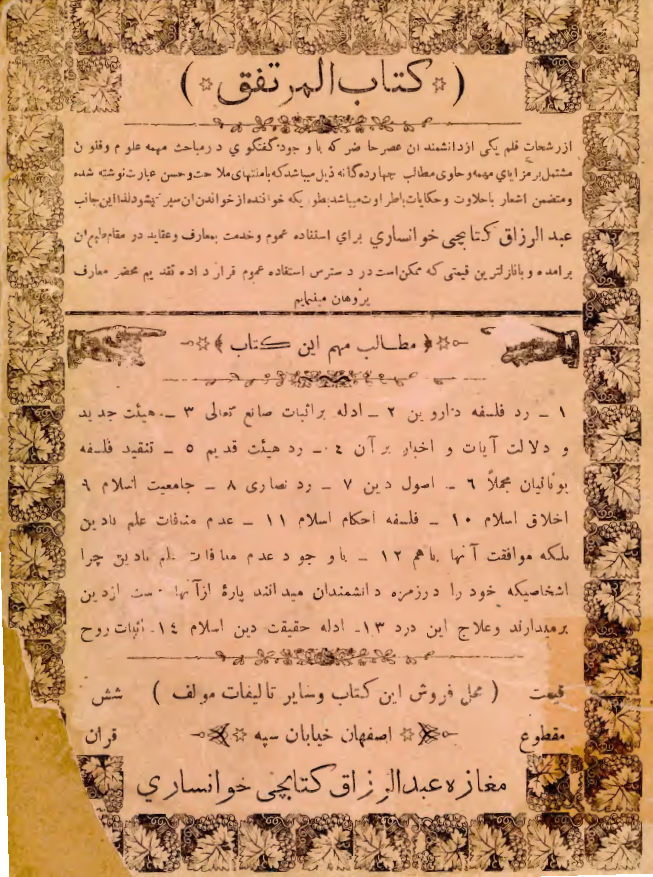 ( * کتاب المرتفق * )
از رشحات قلم یکی از دانشمندان عصر حاضر که با وجود گفتگوي در مباحث مهمه علوم وفنون
مشتمل بر مزایاي مهمه و حاوي مطالب چهارده گانه ذیل میباشد که با منتهای ملاحت و حسن عبارت نوشته شده
و متضمن اشعار با حلاوت و حکایات باطراوت میباشد بطوریکه خواننده از خواندن ان سیر نمیشود لذا این جانب
عبد الرزاق کتابچی خوانساري براي استفاده عموم وخدمت بمعارف وعقاید در مقام طبع ان
برامده و بانازلترین قیمتی که ممکن است در دسترس استفاده عموم قرار داده تقدیم محضر معارف
پژوهان مینمایم
﴿ مطالب مهم این کتاب ﴾
۱ ـ رد فلسفه داروین ۲ ـ ادله بر اثبات صانع تعالی ۳ ـ هیئت جدید
و دلالت آیات و اخبار بر آن ٤ ـ رد هیئت قدیم ٥ ـ تنقید فلسفه
یونانیان مجملاً ٦ ـ اصول دین ۷ ـ رد نصاری ۸ ـ جامعیت اسلام ۹
اخلاق اسلام ۱۰ ـ فلسفه احکام اسلام ۱۱ ـ عدم منافات علم بادین
بلکه موافقت آنها باهم ۱۲ ـ با وجود عدم منافات علم بادین چرا
اشخاصیکه خود را درزمره دانشمندان میدانند پارهٔ ازآنها دست ازدین
برمیدارند وعلاج این درد ۱۳ـ ادله حقیقت دین اسلام ۱٤ـ اثبات روح
قیمت ( محل فروش این کتاب وسایر تالیفات مولف ) شش
مقطوع اصفهان خیابان سپه قران
مغازه عبدالرزاق کتابچی خوانساري